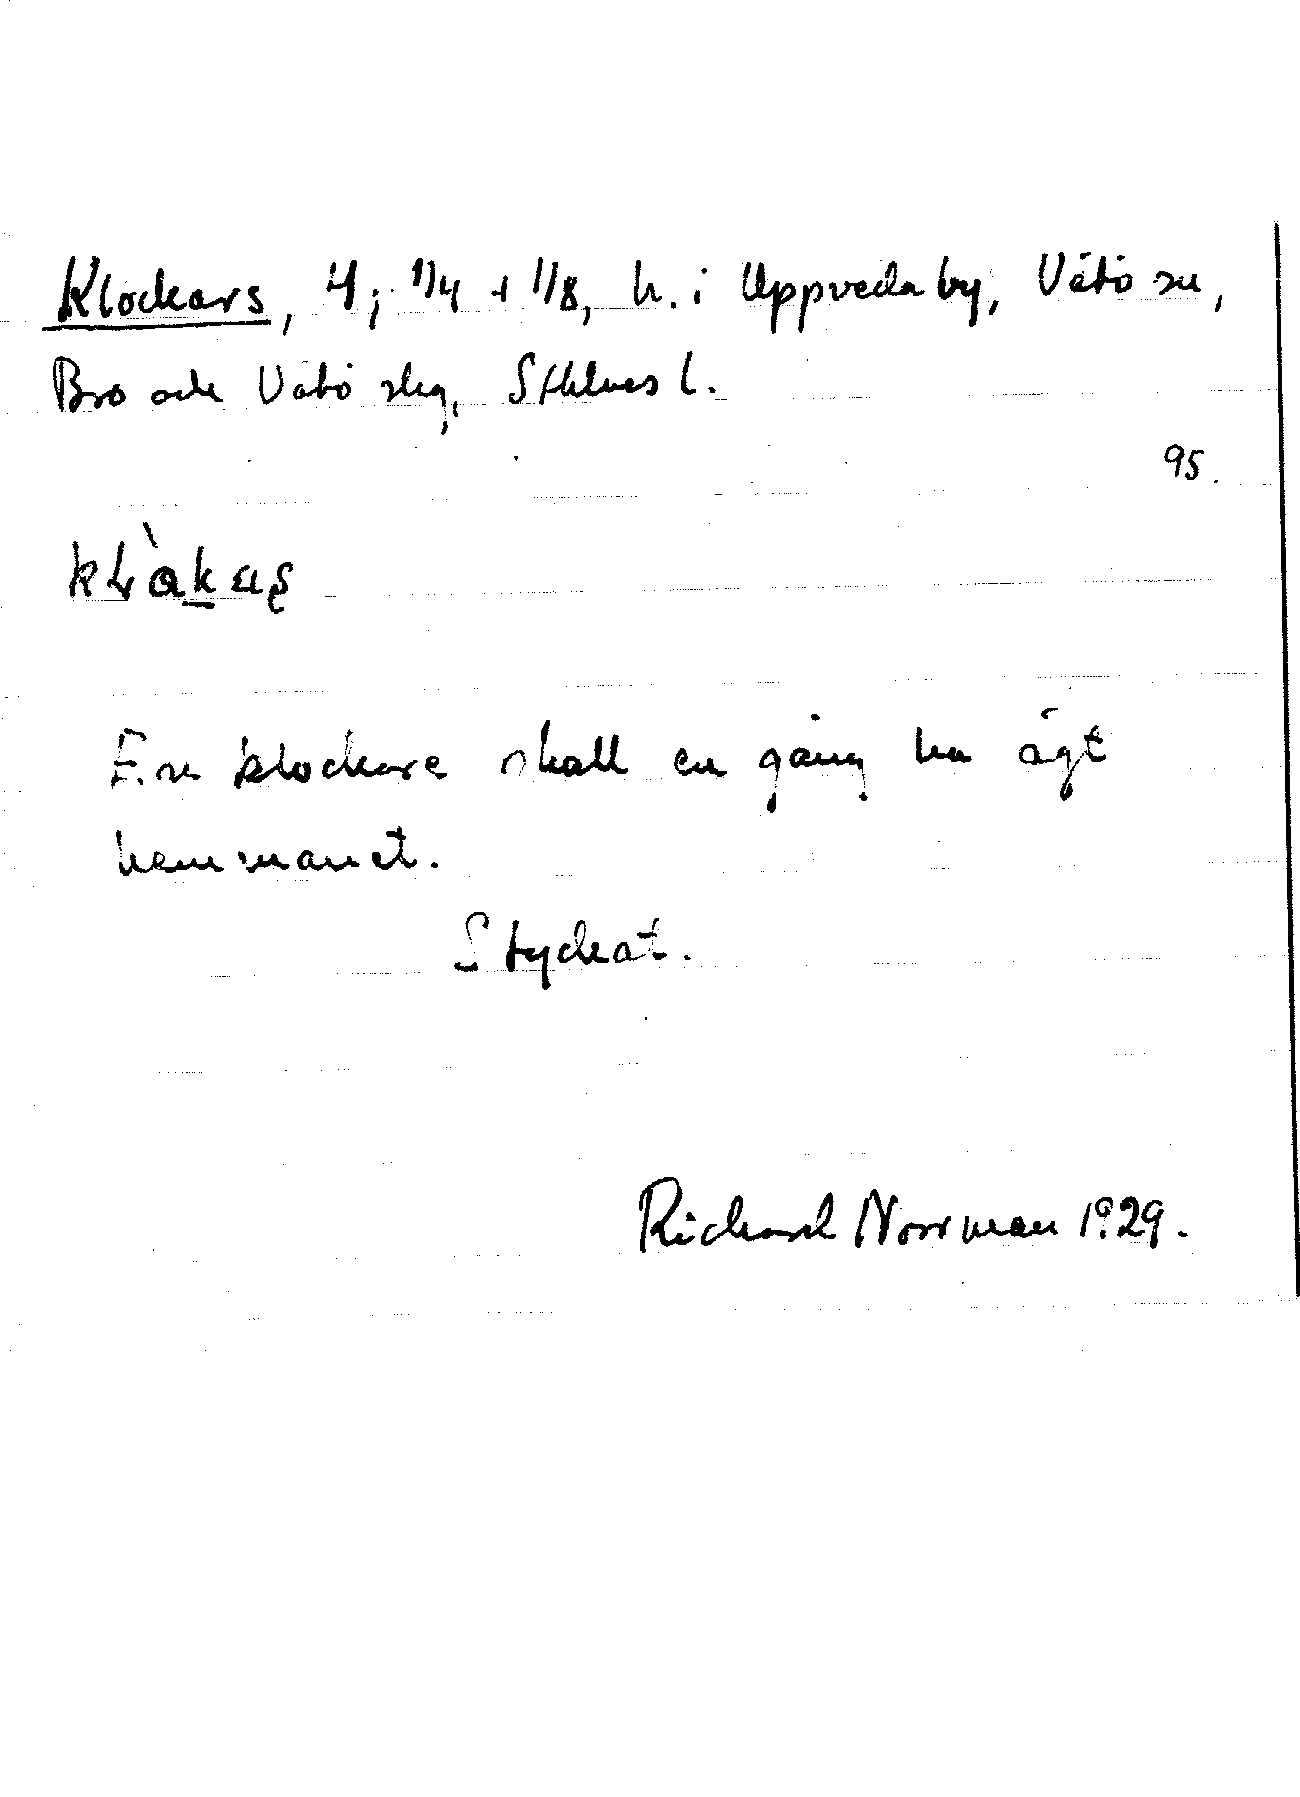 Klockars, 4; 1/4 + 1/8, h. i Uppveda by, Vätö sn,
Bro och Vätö skg, Sthlms l.
95.
En klockare skall en gång ha ägt
hemmanet.
Styckat.
Richard Norrman 1929.